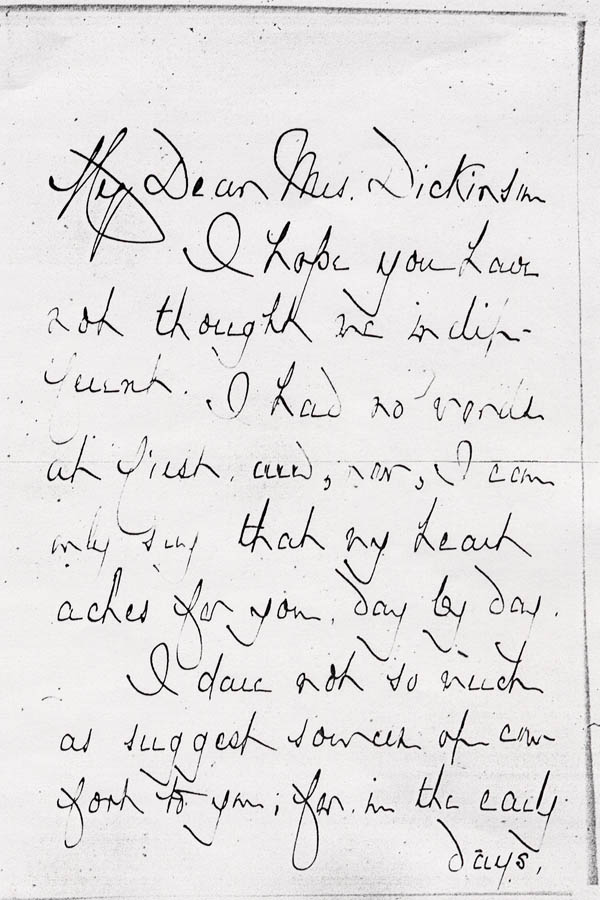 My Dear Mrs. Dickinson
I hope you have
not thought me indif-
ferent. I had no words
at first, and, now, I can
only say that my heart
aches for you, day by day.
I dare not so much
as suggest sources of com-
fort to you; for in the early
days,